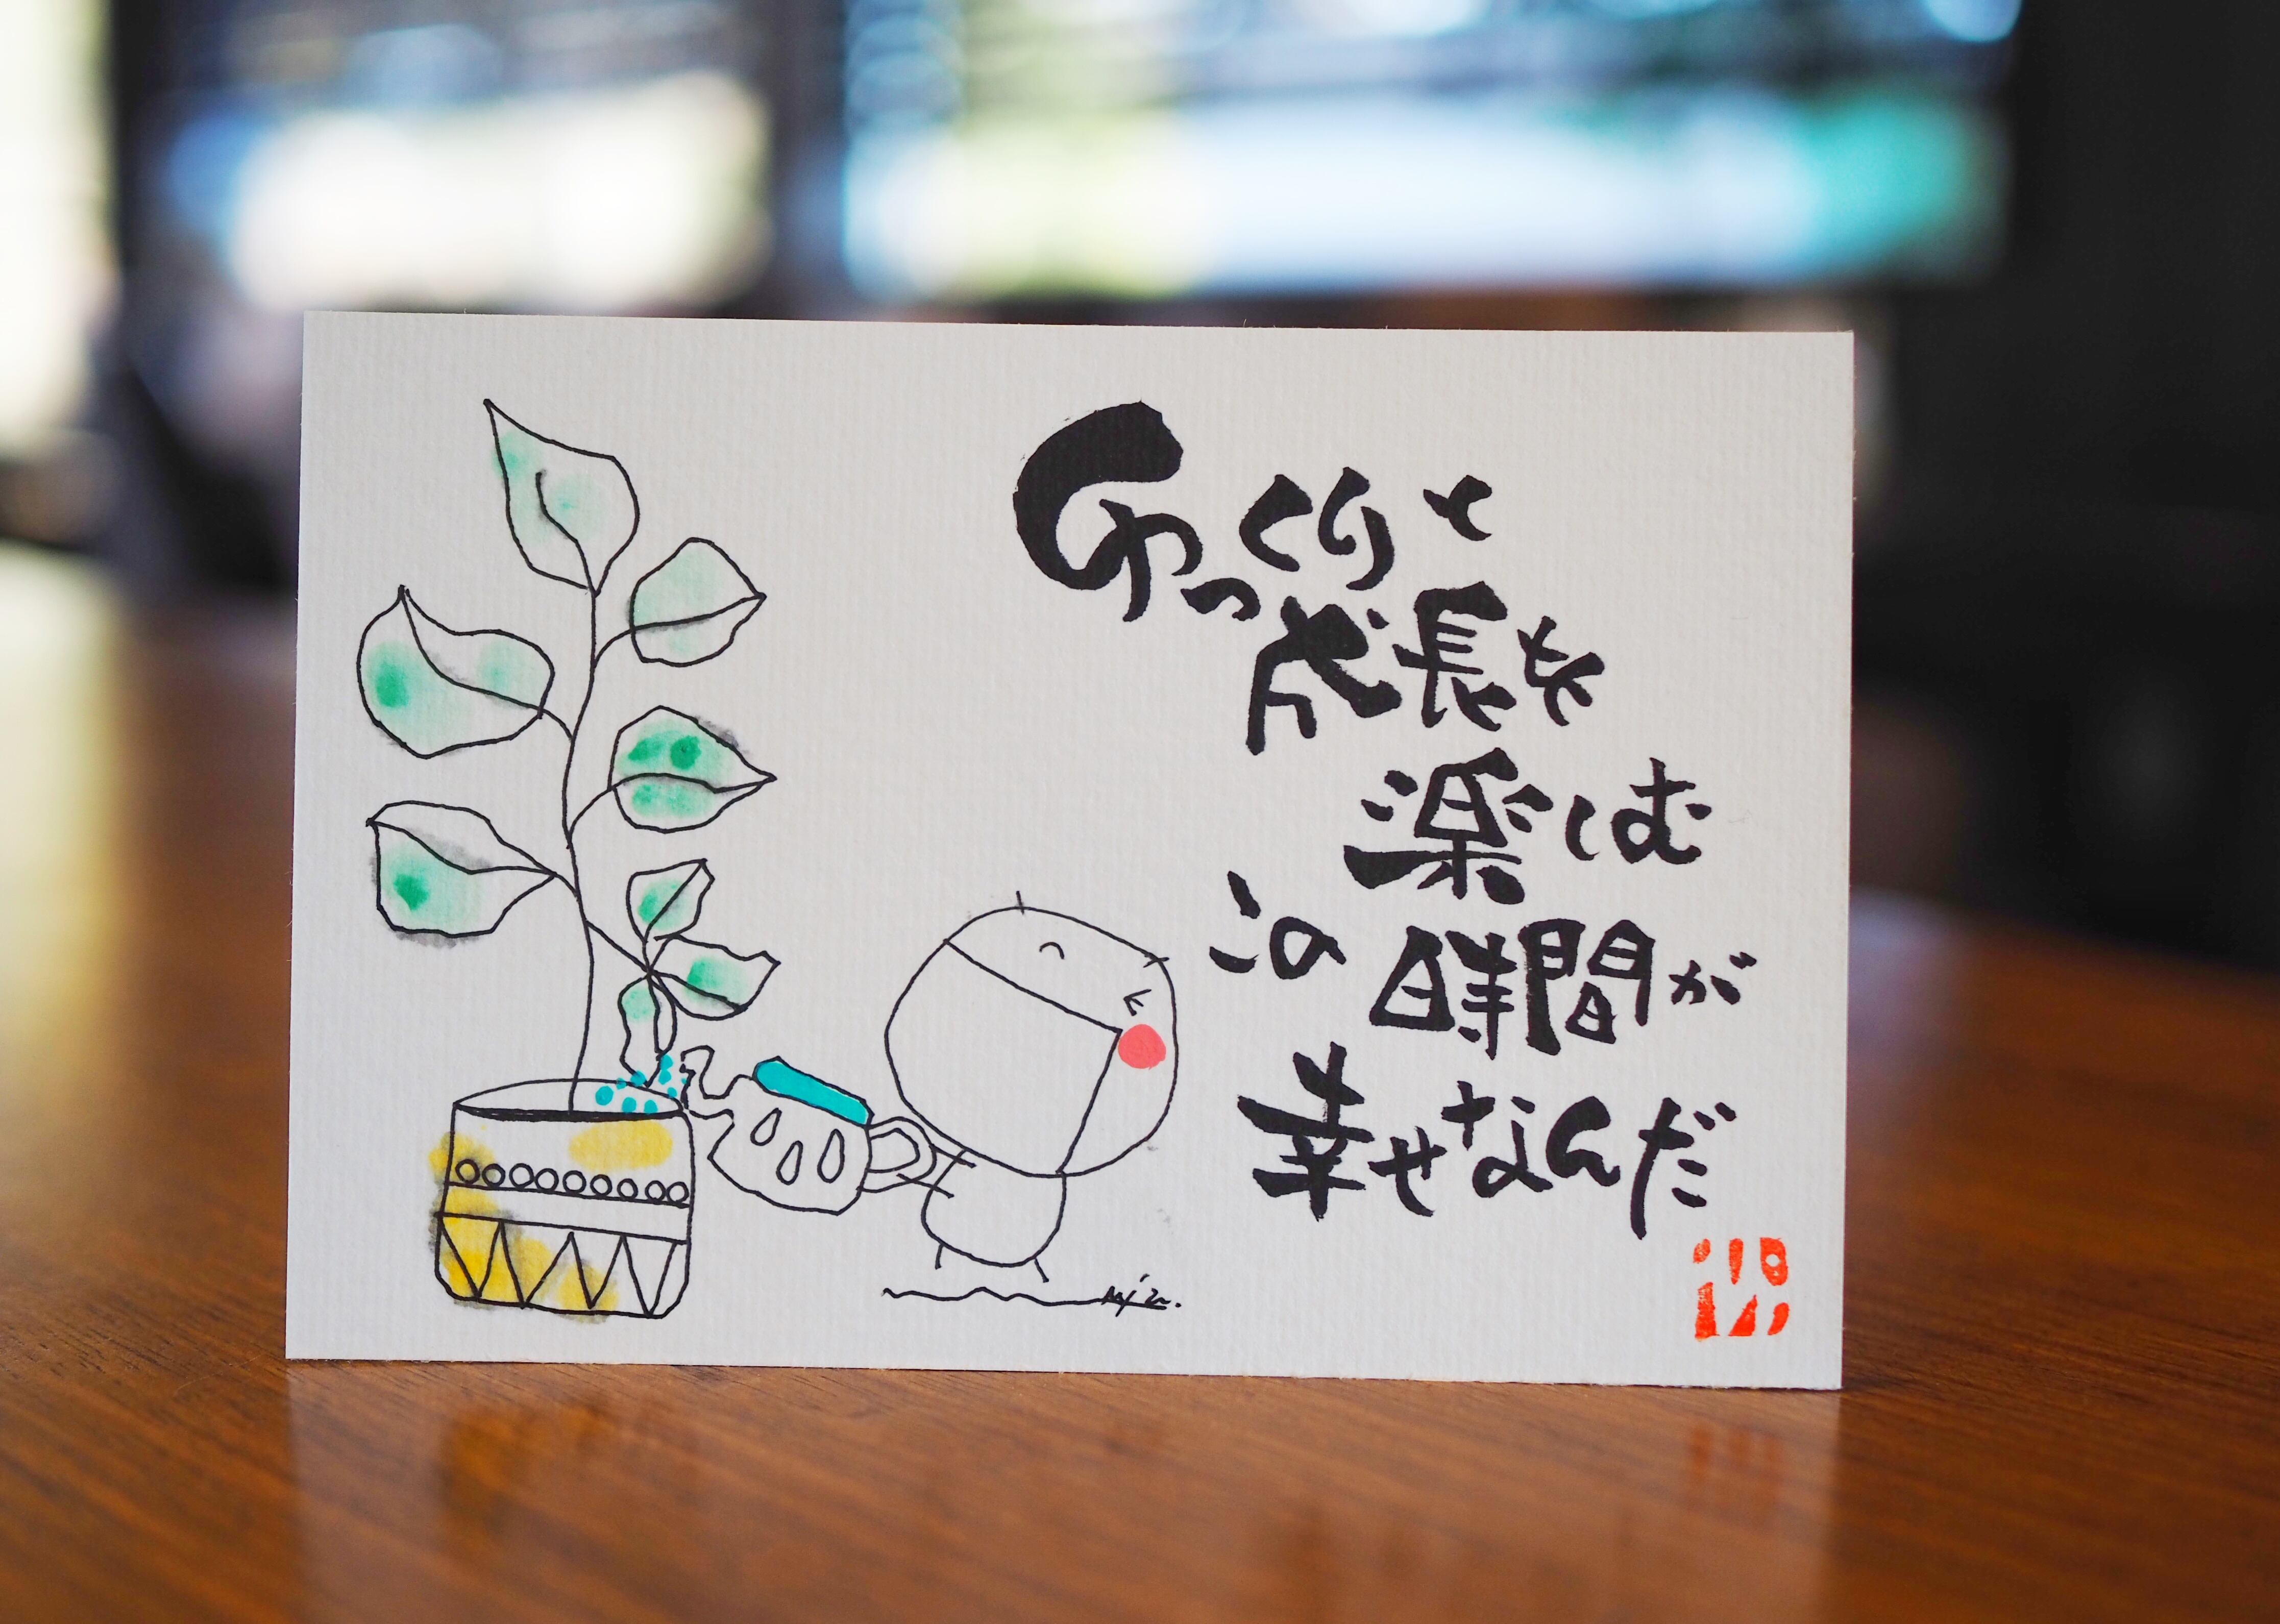 ゆっくりと
成長を
楽しむ
この時間が
幸せなんだ